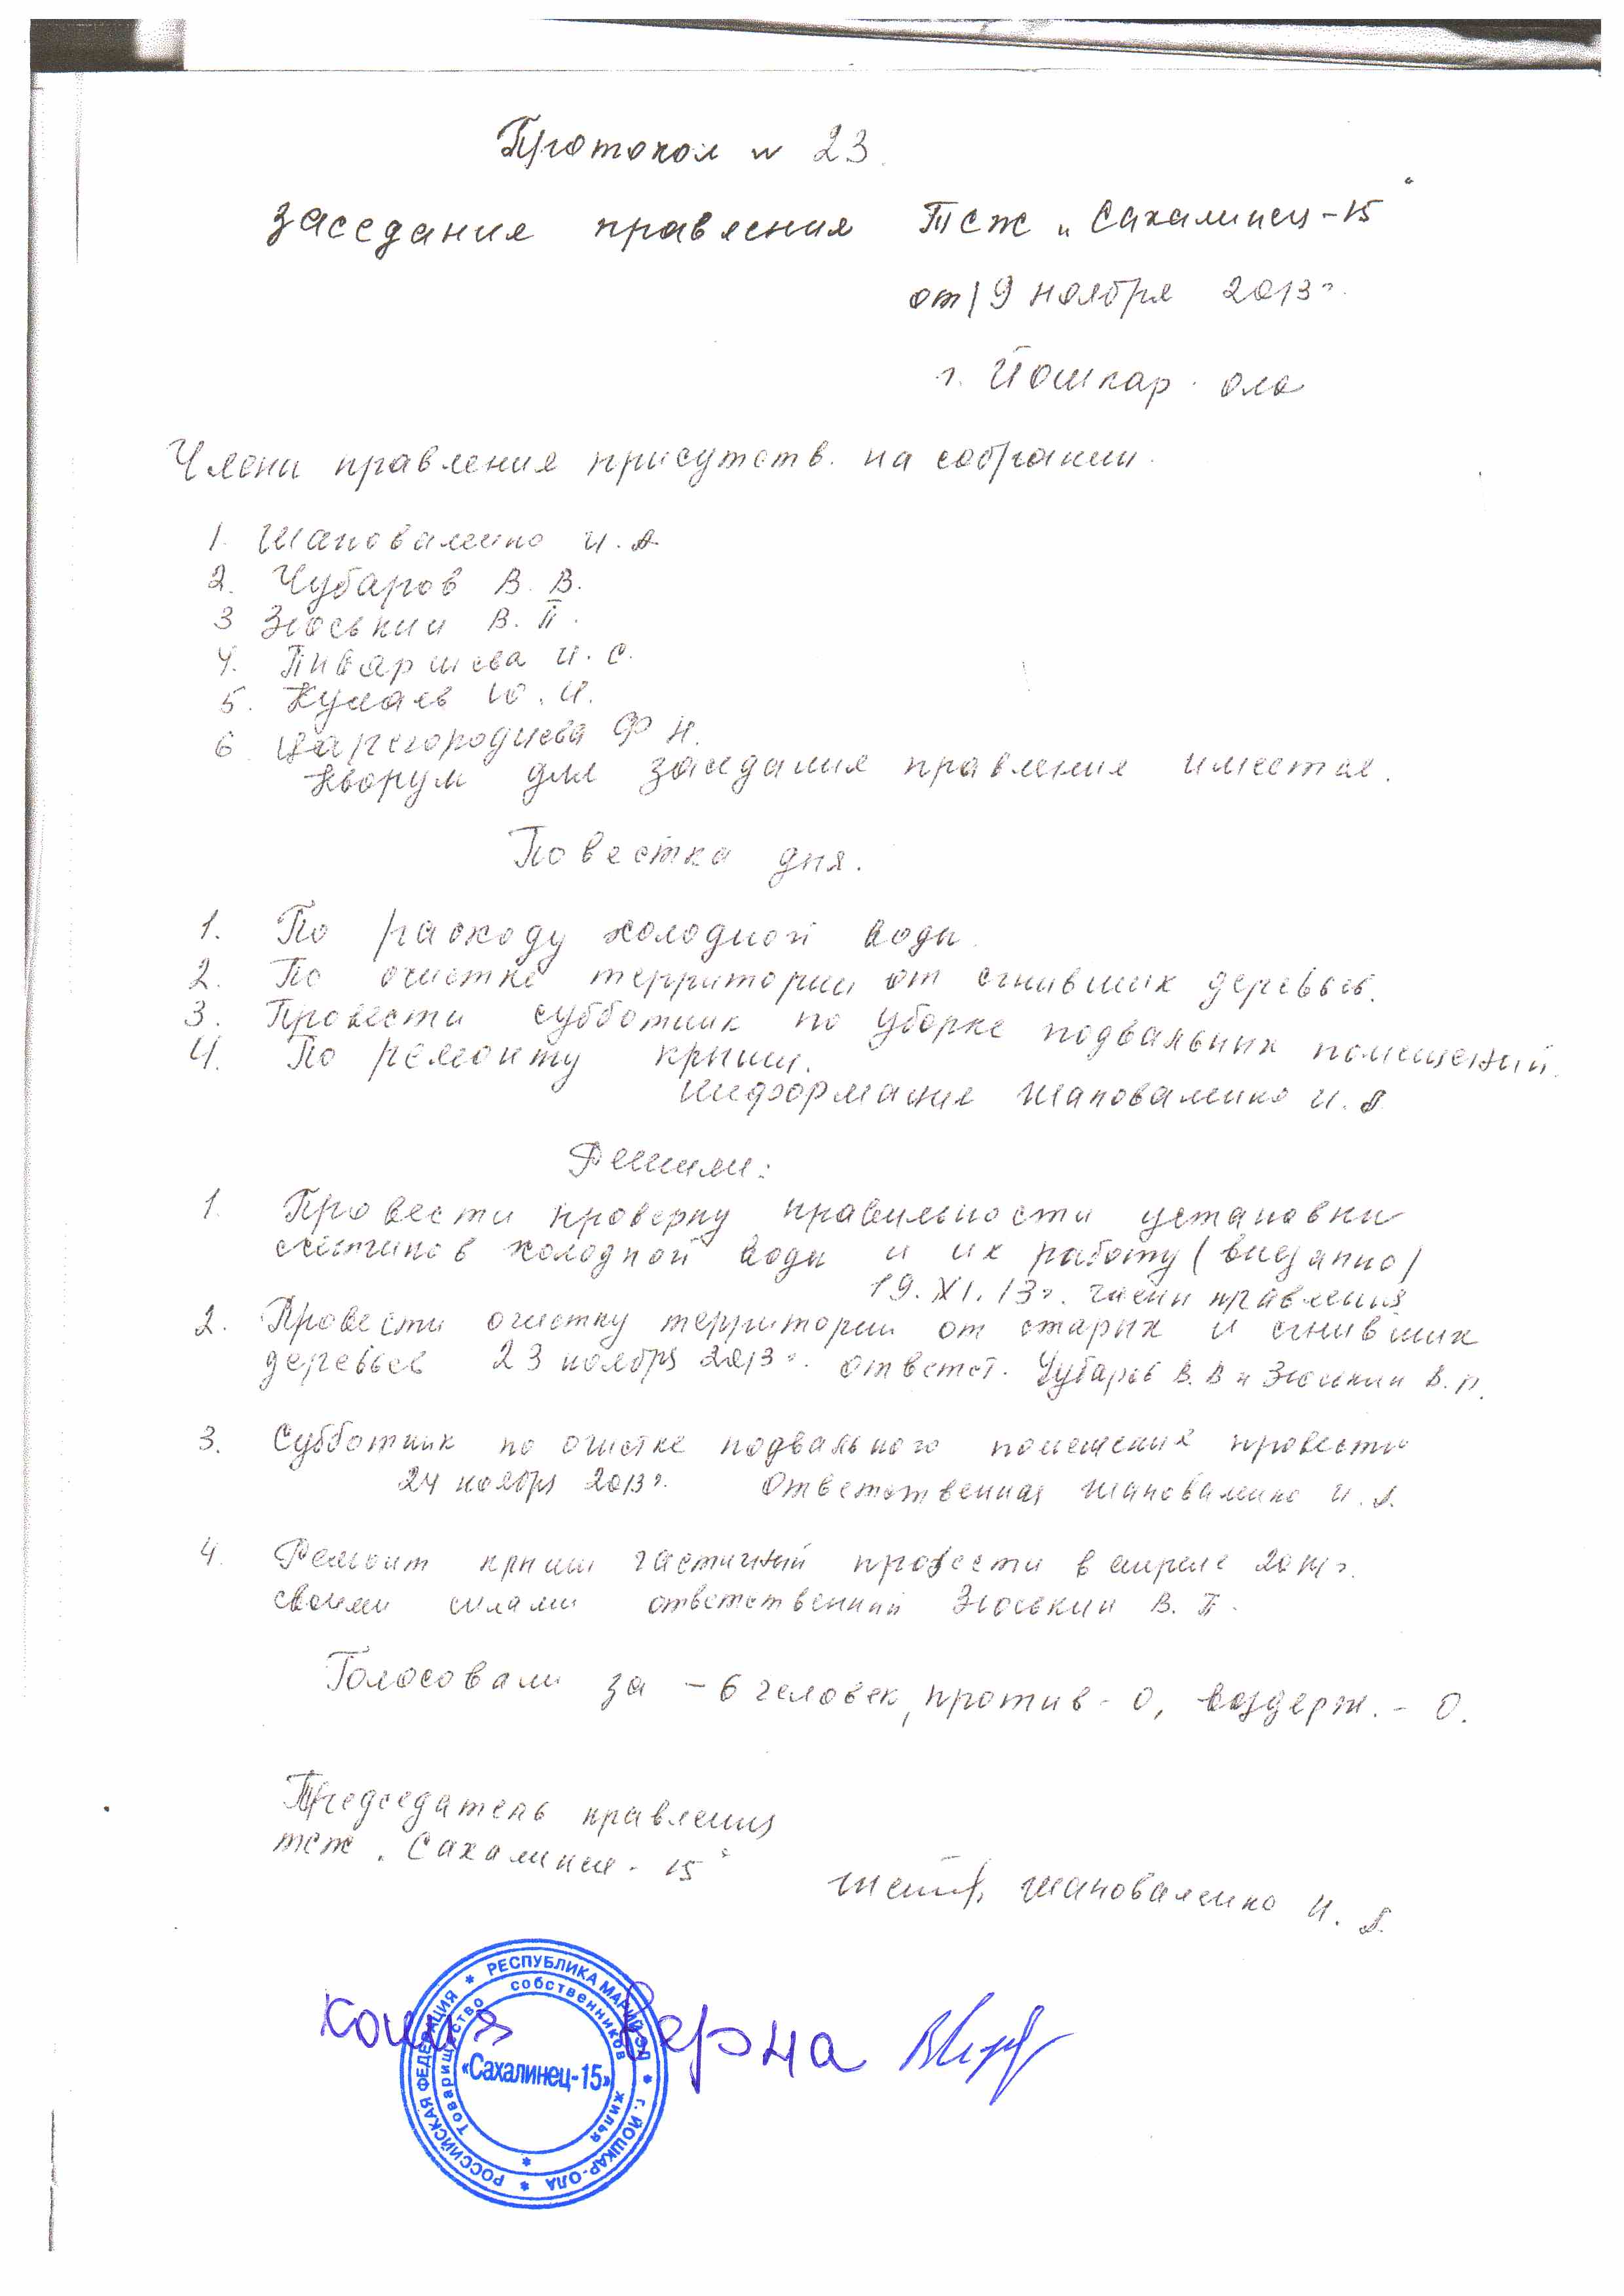 Протокол N 23.
заседания правления ТСЖ „Сахалинец-15"
от 19 ноября 2013г.
г. Йошкар-Ола
Члены правления присутств. на собрании.
1. Шаповаленко И. А.
2. Чубаров В. В.
3 Зюськин В. П.
4. Пиваршева И. С.
5. Кулаев Ю. И.
6. Царегородцева Ф Н.
Кворум для заседания правления имеется.
Повестка дня.
1. По расходу холодной воды.
2. По очистке территории от сгнивших деревьев.
3. Провести субботник по уборке подвальных помещений.
4. По ремонту крыши.
Информация Шаповаленко И. А.
Решили:
1. Провести проверку правильности установки
счётчиков холодной воды и их работу (внезапно)
19.XI.13г. члены правления
2. Провести очистку территории от старых и сгнивших
деревьев 23 ноября 2013г. ответст. Чубаров В. В и Зюськин В. П.
3. Субботник по очистке подвального помещения провести
24 ноября 2013г. Ответственная Шаповаленко И. А.
4. Ремонт крыши частичный провести в апреле 2014г.
своими силами ответственный Зюськин В. П.
Голосовали за - 6 человек, против - 0, воздерж. - 0.
Председатель правления
ТСЖ „Сахалинец-15"
Шаповаленко И. А.
копия верна
РОССИЙСКАЯ ФЕДЕРАЦИЯ * РЕСПУБЛИКА МАРИЙ ЭЛ * г. ЙОШКАР-ОЛА *
Товарищество собственников жилья *
«Сахалинец-15»